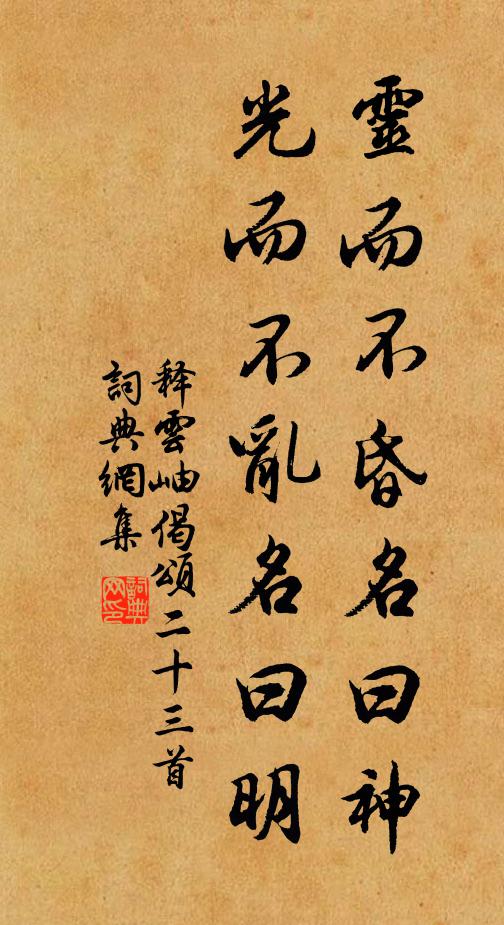 靈而不昏名曰神
光而不亂名曰明
释雲岫偈頌二十三首
詞典網集
詞典网印